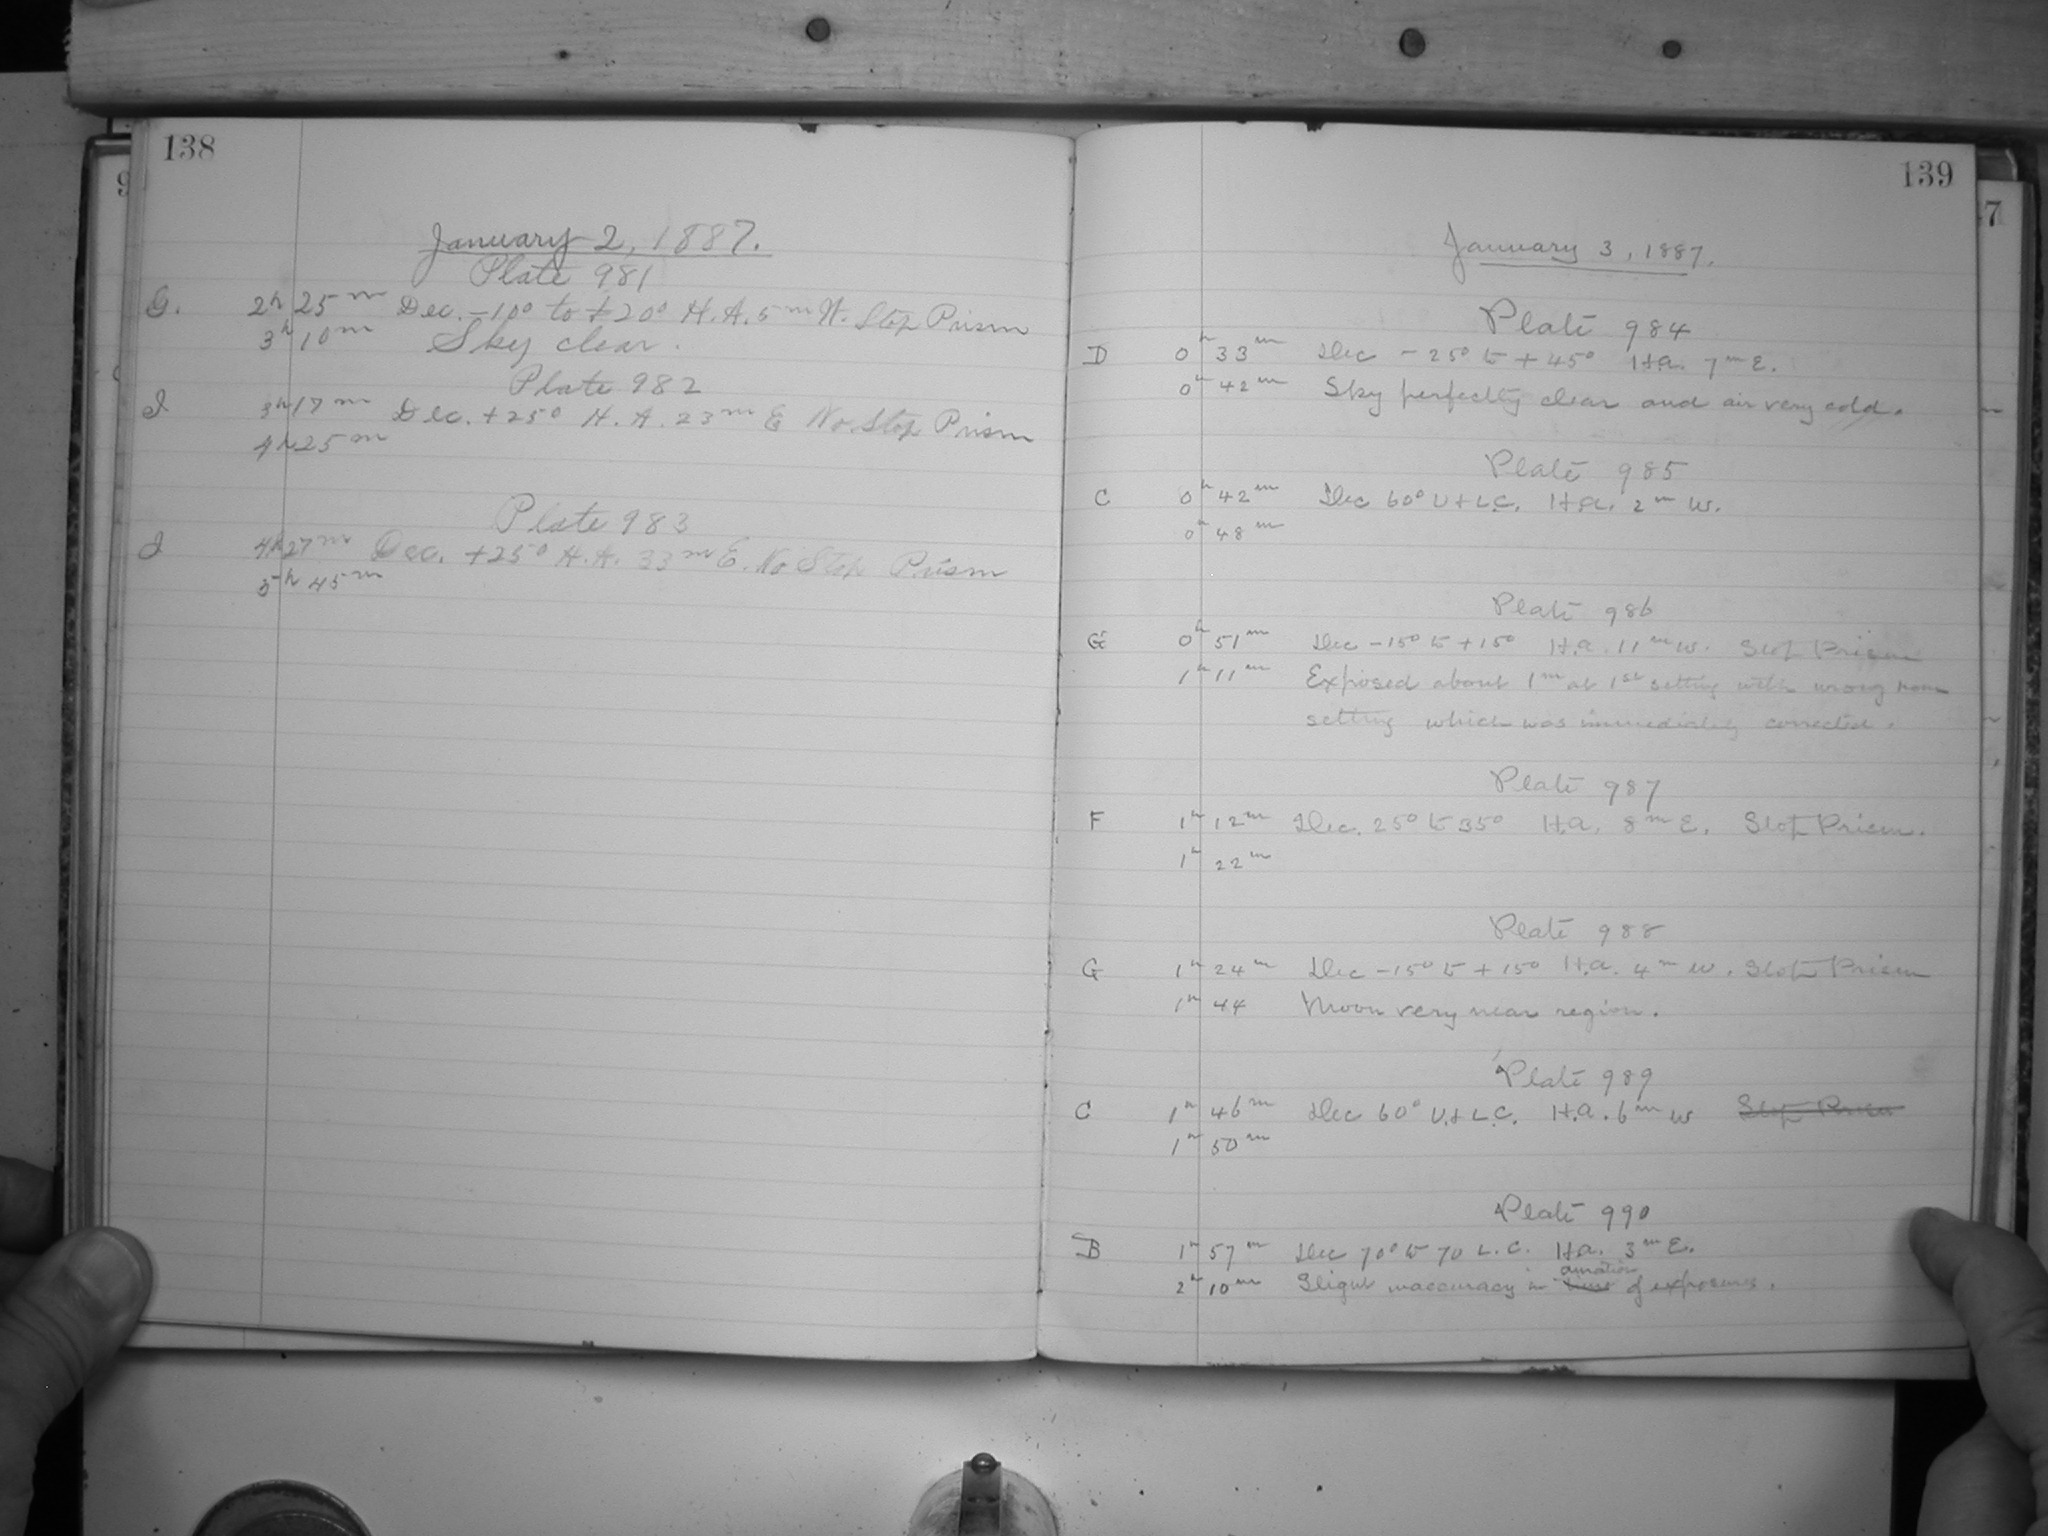 138
January 2, 1887.
Plate 981
G. 2h 25m Dec. -10° to +20° H.A. 5m W. Stop Prism
3h 10m Sky clear.
Plate 982
I 3h 17m Dec. +25° H. A. 23m E No Stop Prism
4h 25m
Plate 983
I 4h 27m Dec. +25° H.A. 33m E. No Stop Prism
5h 45m
139
January 3, 1887.
Plate 984
D 0h 33m Dec -25° to +45° H.a. 7m E.
0h 42m Sky perfectly clear and air very cold.
Plate 985
C 0h 42m Dec 60° U + L.C. H.a. 2m W.
0h 48m
Plate 986
G 0h 51m Dec -15° to +15° H.a. 11m W. Stop Prism
1h 11m Exposed about 1m at 1st setting with wrong
setting which was immediately corrected.
Plate 987
F 1h 12m Dec. 25° to 35° H.a. 8m E. Stop Prism.
1h 22m
Plate 988
G 1h 24m Dec -15° to +15° H.a. 4m W. Stop Prism
1h 44 Moon very near region.
Plate 989
C 1h 46m Dec 60° U. + L.C. H.a. 6m W Stop Prism
1h 50m
Plate 990
B 1h 57m Dec 70° to 70 L.C. H.a. 3m E.
2h 10m Slight inaccuracy in time duration of exposures.
7